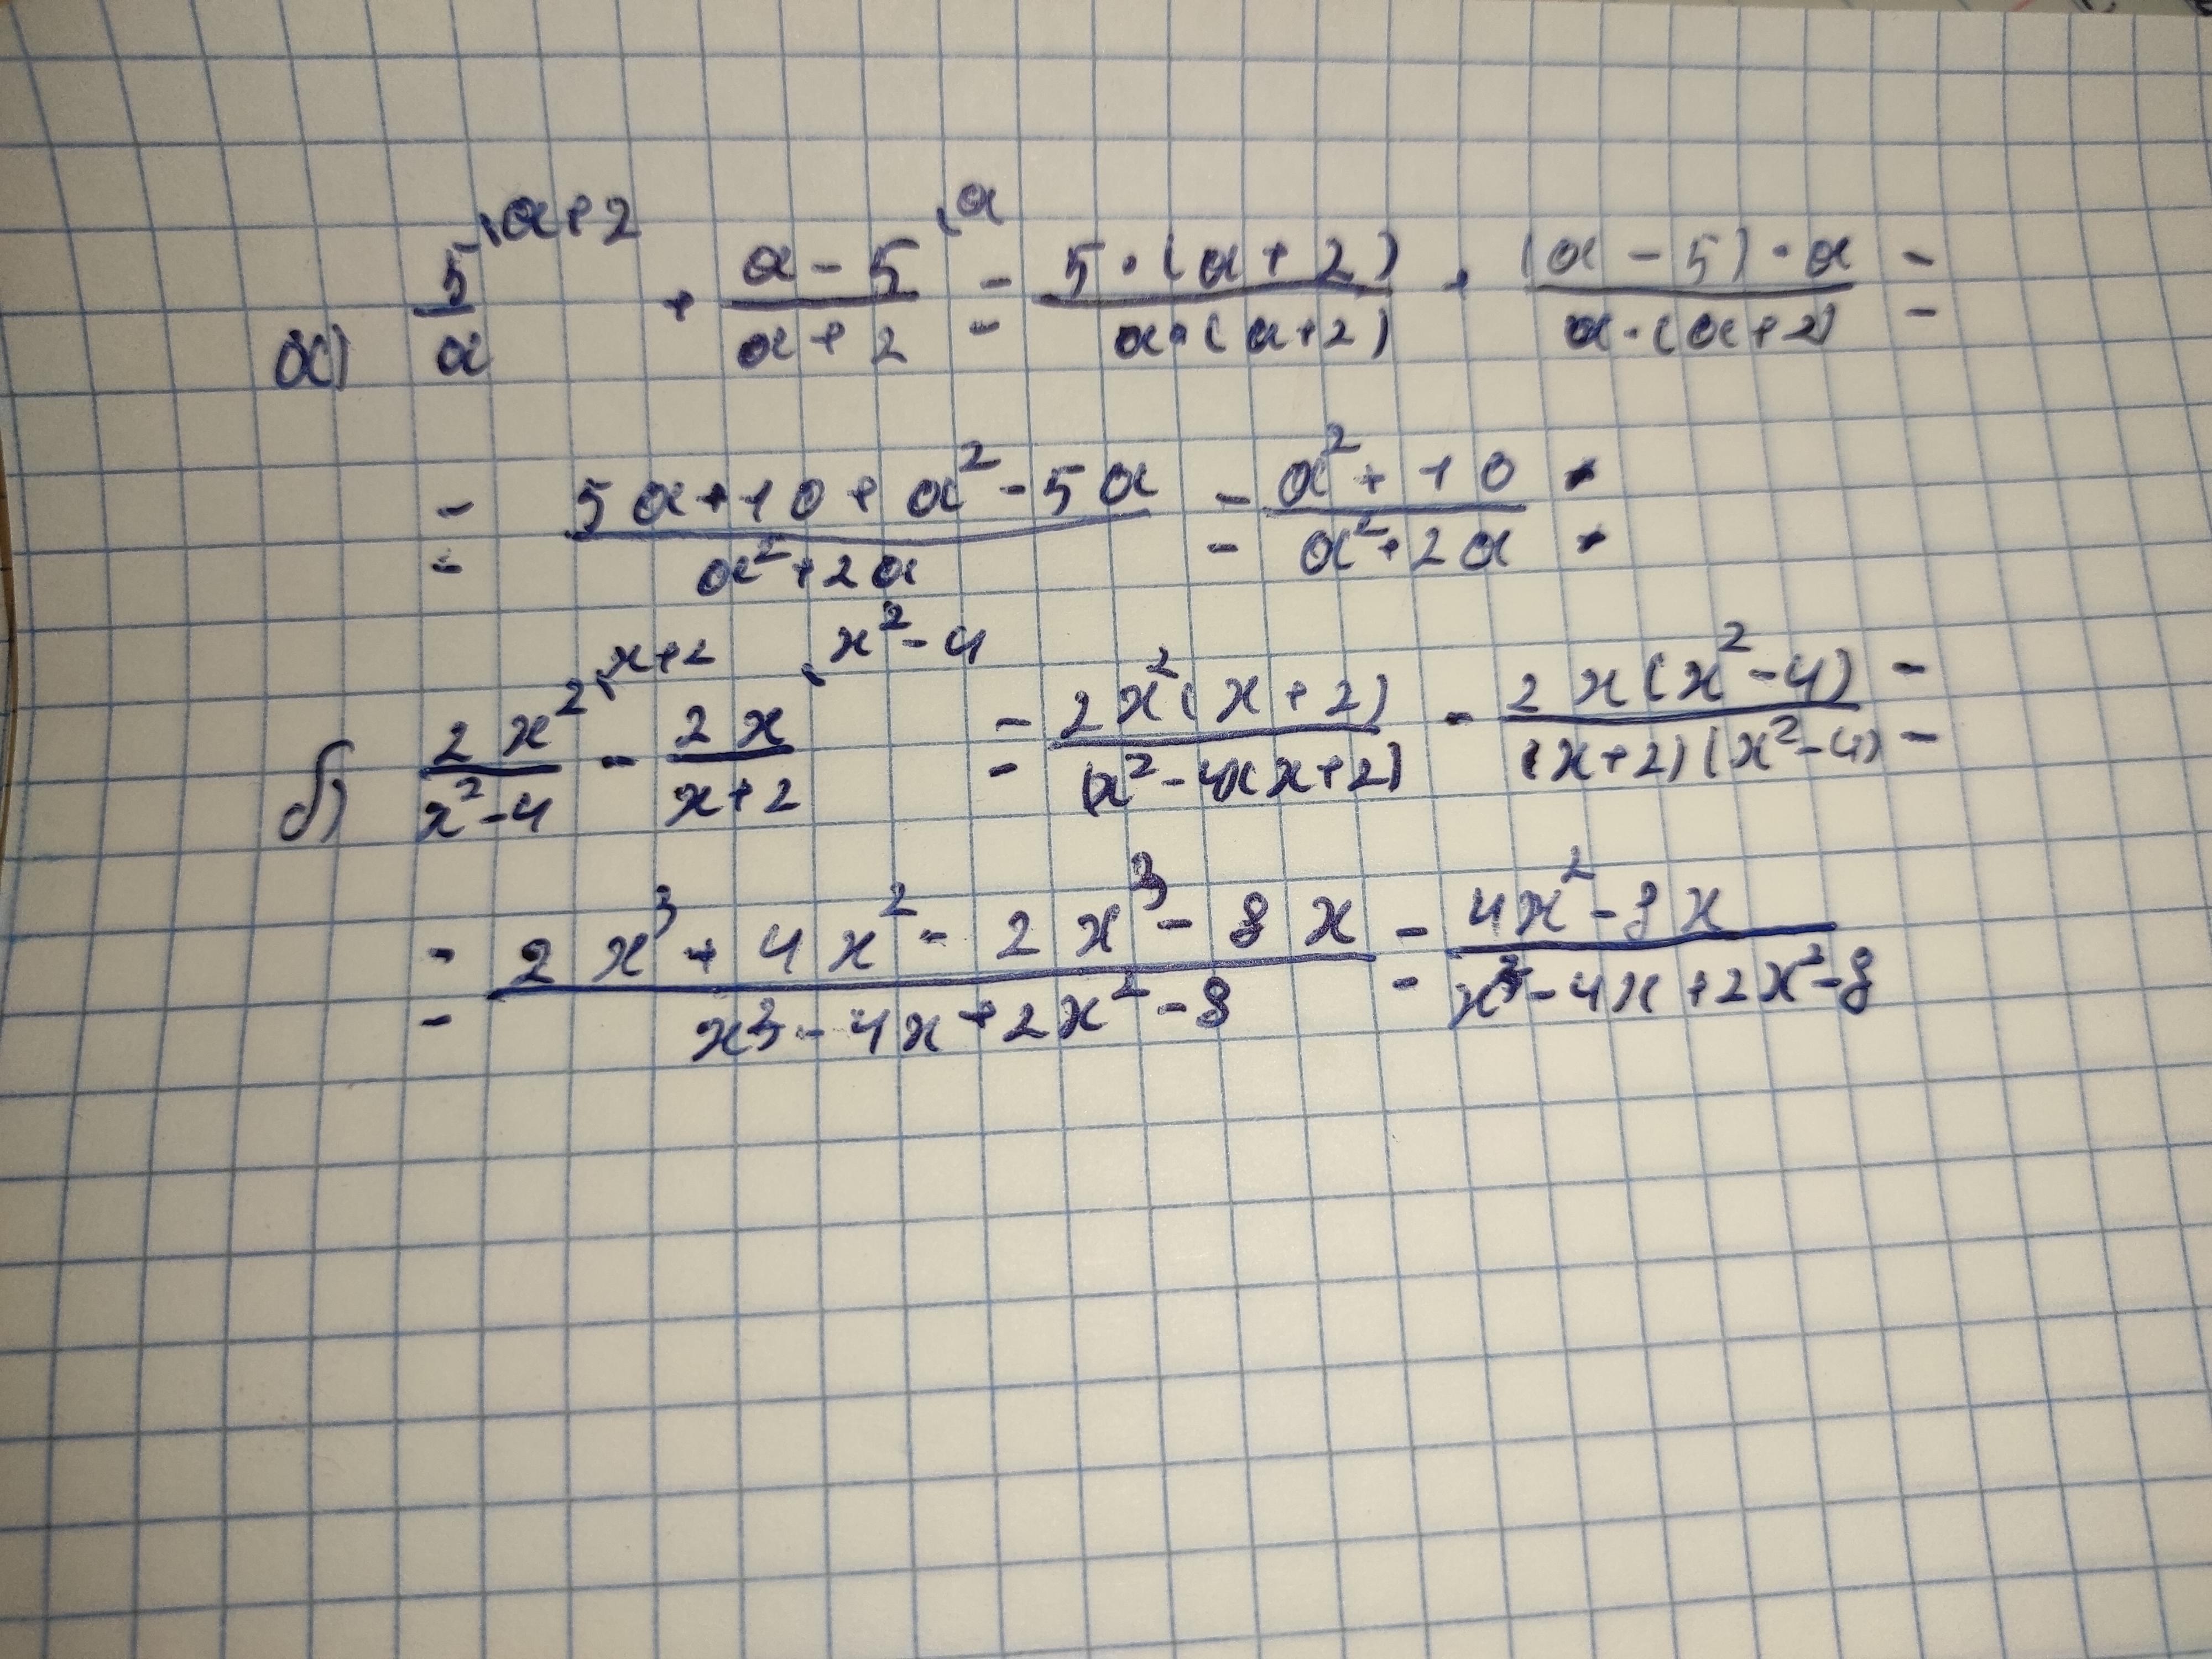 а) 5/a \a+2 + a-5/a+2 \a = 5·(a+2)/a·(a+2) + (a-5)·a/a·(a+2) =
= 5a+10+a²-5a/a²+2a = a²+10/a²+2a
б) 2x²/x²-4 \x+2 - 2x/x+2 \x²-4 = 2x²(x+2)/(x²-4)(x+2) - 2x(x²-4)/(x+2)(x²-4) =
= 2x³+4x²-2x³-8x/x³-4x+2x²-8 = 4x²-8x/x³-4x+2x²-8